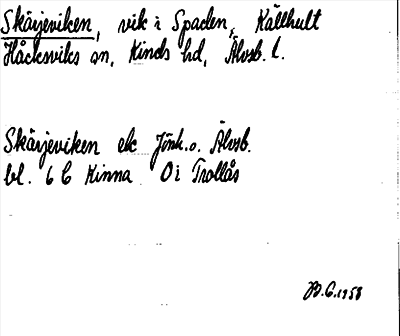 Skärjeviken, vik i Spaden, Källhult
Håcksviks sn, Kinds hd, Älvsb. l.
Skärjeviken ek Jönk. o. Älvsb.
bl. 6 C Kinna O i Trollås
B.G. 1958